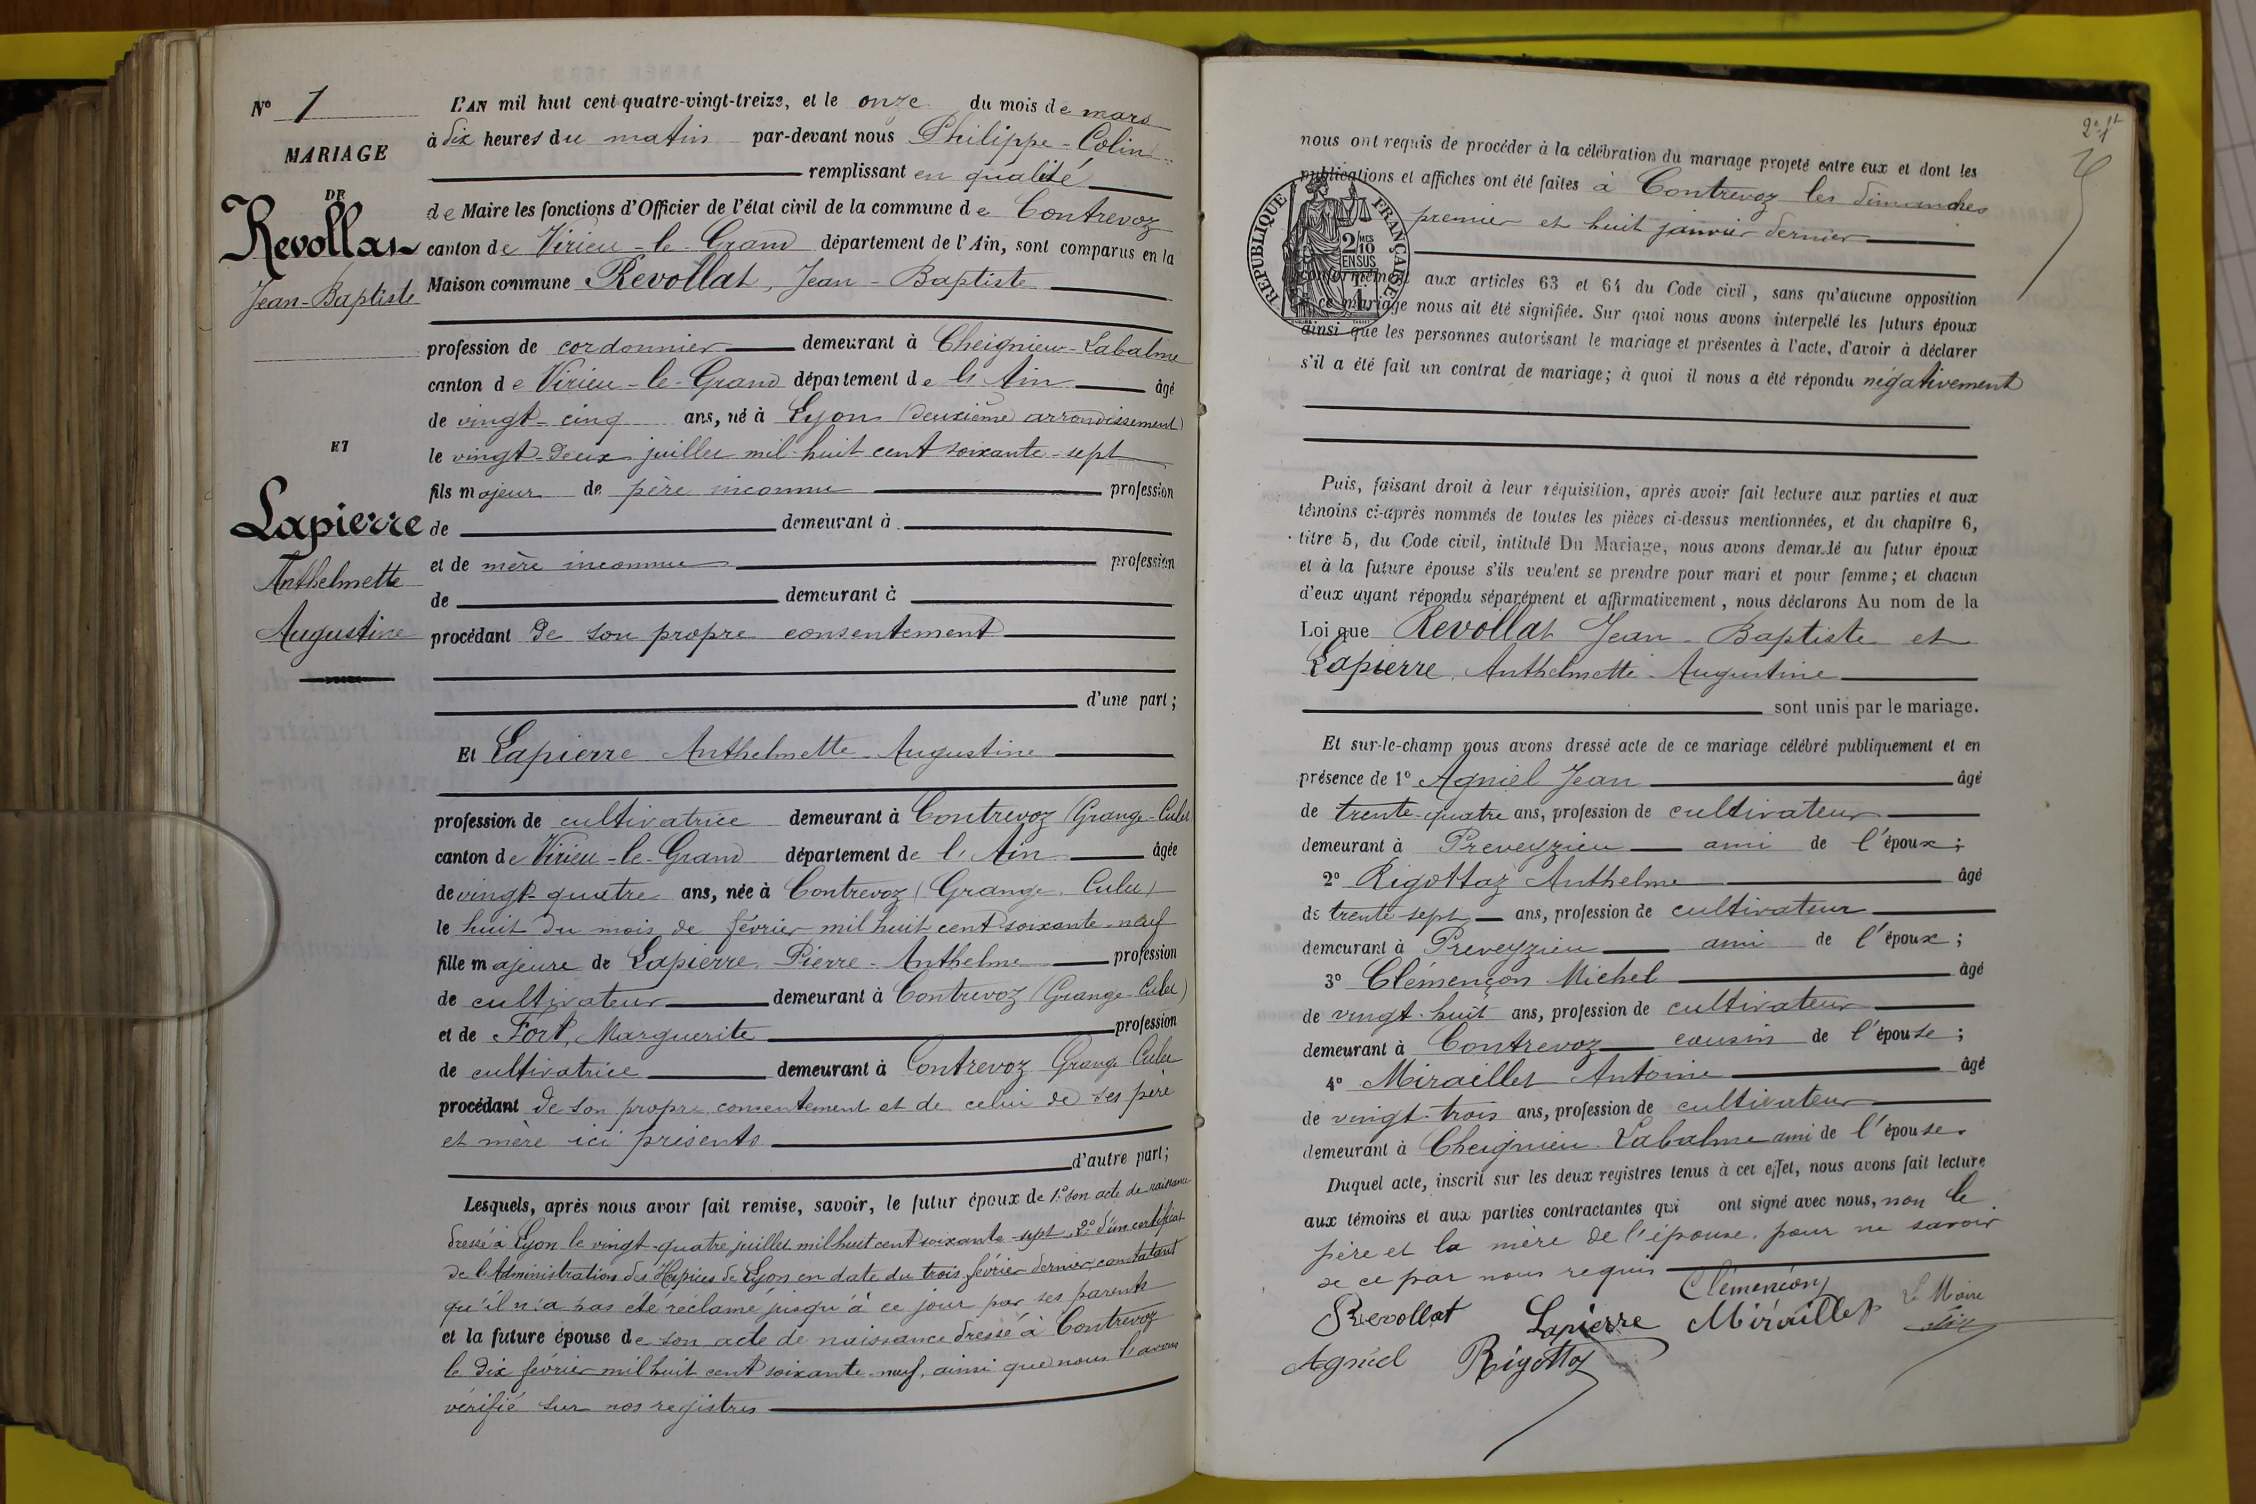 N° 1
MARIAGE
DE
Revollat
Jean-Baptiste
ET
Lapierre
Anthelmette
Augustine
L'AN mil huit cent quatre-vingt-treize, et le onze du mois de mars
à dix heures du matin par-devant nous Philippe-Colin
remplissant en qualité
de Maire les fonctions d'Officier de l'état civil de la commune de Contrevoz
canton de Virieu-le-Grand département de l'Ain, sont comparus en la
Maison commune Revollat, Jean-Baptiste
profession de cordonnier demeurant à Cheignieu-Labalme
canton de Virieu-le-Grand département de l'Ain âgé
de vingt-cinq ans, né à Lyon (deuxième arrondissement)
le vingt-deux juillet mil huit cent soixante-sept
fils majeur de père inconnu profession
de demeurant à
et de mère inconnue profession
de demeurant à
procédant de son propre consentement
d'une part;
Et Lapierre Anthelmette Augustine
profession de cultivatrice demeurant à Contrevoz (Grange-Culet
canton de Virieu-le-Grand département de l'Ain âgée
de vingt-quatre ans, née à Contrevoz (Grange Culet)
le huit du mois de février mil huit cent soixante-neuf
fille majeure de Lapierre Pierre-Anthelme profession
de cultivateur demeurant à Contrevoz (Grange-Culet)
et de Fort, Marguerite profession
de cultivatrice demeurant à Contrevoz Grange Culet
procédant de son propre concentement et de celui de ses père
et mère ici présents
d'autre part;
Lesquels, après nous avoir fait remise, savoir, le futur époux de 1° son acte de naissance
dressé à Lyon le vingt-quatre juillet mil huit cent soixante-sept, 2° d'un certificat
de l'Administration des Hospices de Lyon en date du trois février dernier, constatant
qu'il n'a pas été réclamé jusqu'à ce jour par ses parents
et la future épouse de son acte de naissance dressé à Contrevoz
le dix février mil huit cent soixante-neuf, ainsi que nous l'avons
vérifié sur nos registres
2e ft
nous ont requis de procéder à la célébration du mariage projeté entre eux et dont les
publications et affiches ont été faites à Contrevoz les dimanches
premier et huit janvier dernier
RÉPUBLIQUE FRANÇAISE
2 MES 10
EN SUS
conformément aux articles 63 et 64 du Code civil, sans qu'aucune opposition
à ce mariage nous ait été signifiée. Sur quoi nous avons interpellé les futurs époux
ainsi que les personnes autorisant le mariage et présentes à l'acte, d'avoir à déclarer
s'il a été fait un contrat de mariage; à quoi il nous a été répondu négativement
Puis, faisant droit à leur réquisition, après avoir fait lecture aux parties et aux
témoins ci-après nommés de toutes les pièces ci-dessus mentionnées, et du chapitre 6,
titre 5, du Code civil, intitulé Du Mariage, nous avons demandé au futur époux
et à la future épouse s'ils veulent se prendre pour mari et pour femme; et chacun
d'eux ayant répondu séparément et affirmativement, nous déclarons Au nom de la
Loi que Revollat Jean-Baptiste et
Lapierre, Anthelmette Augustine
sont unis par le mariage.
Et sur-le-champ nous avons dressé acte de ce mariage célébré publiquement et en
présence de 1° Agniel Jean âgé
de trente-quatre ans, profession de cultivateur
demeurant à Preveyzieu ami de l'époux;
2° Rigottaz Anthelme âgé
de trente-sept ans, profession de cultivateur
demeurant à Preveyzieu ami de l'époux;
3° Clémençon Michel âgé
de vingt-huit ans, profession de cultivateur
demeurant à Contrevoz cousin de l'épouse;
4° Miraillet Antoine âgé
de vingt-trois ans, profession de cultivateur
demeurant à Cheignieu Labalme ami de l'épouse.
Duquel acte, inscrit sur les deux registres tenus à cet effet, nous avons fait lecture
aux témoins et aux parties contractantes qui ont signé avec nous, non le
père et la mère de l'épouse, pour ne savoir
de ce par nous requis
Clémençon
Revollat Lapierre Miraillet Le Maire
Agniel Rigottaz